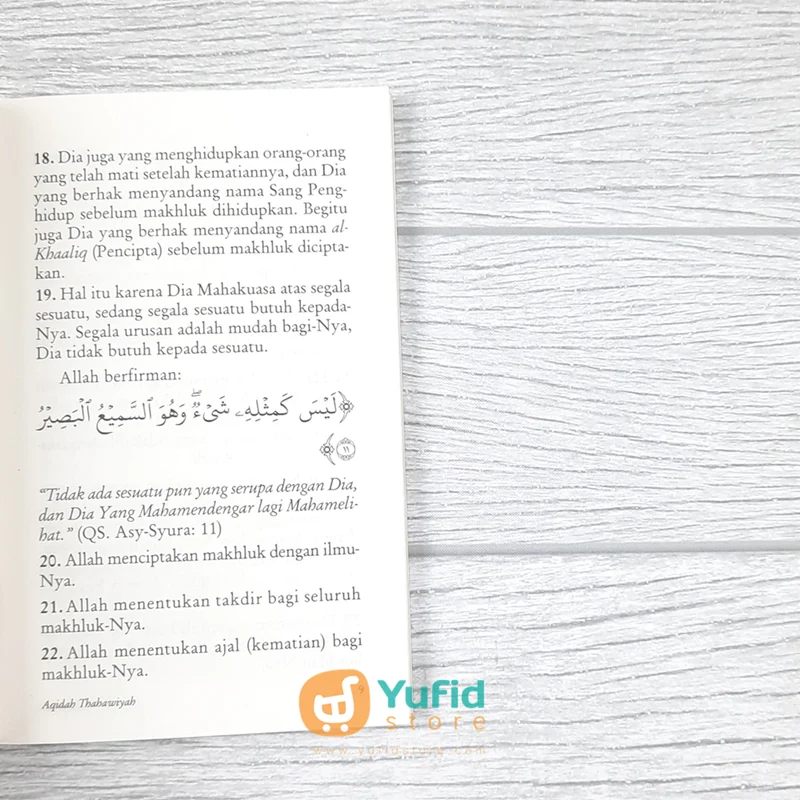 18. Dia juga yang menghidupkan orang-orang
yang telah mati setelah kematiannya, dan Dia
yang berhak menyandang nama Sang Peng-
hidup sebelum makhluk dihidupkan. Begitu
juga Dia yang berhak menyandang nama al-
Khaaliq (Pencipta) sebelum makhluk dicipta-
kan.
19. Hal itu karena Dia Mahakuasa atas segala
sesuatu, sedang segala sesuatu butuh kepada-
Nya. Segala urusan adalah mudah bagi-Nya,
Dia tidak butuh kepada sesuatu.
Allah berfirman:
﴿لَيْسَ كَمِثْلِهِۦ شَىْءٌۖ وَهُوَ ٱلسَّمِيْعُ ٱلْبَصِيْرُ
١١﴾
“Tidak ada sesuatu pun yang serupa dengan Dia,
dan Dia Yang Mahamendengar lagi Mahameli-
hat.” (QS. Asy-Syura: 11)
20. Allah menciptakan makhluk dengan ilmu-
Nya.
21. Allah menentukan takdir bagi seluruh
makhluk-Nya.
22. Allah menentukan ajal (kematian) bagi
makhluk-Nya.
Aqidah Thahawiyah
9
Yufid
store
www.yufidstore.com